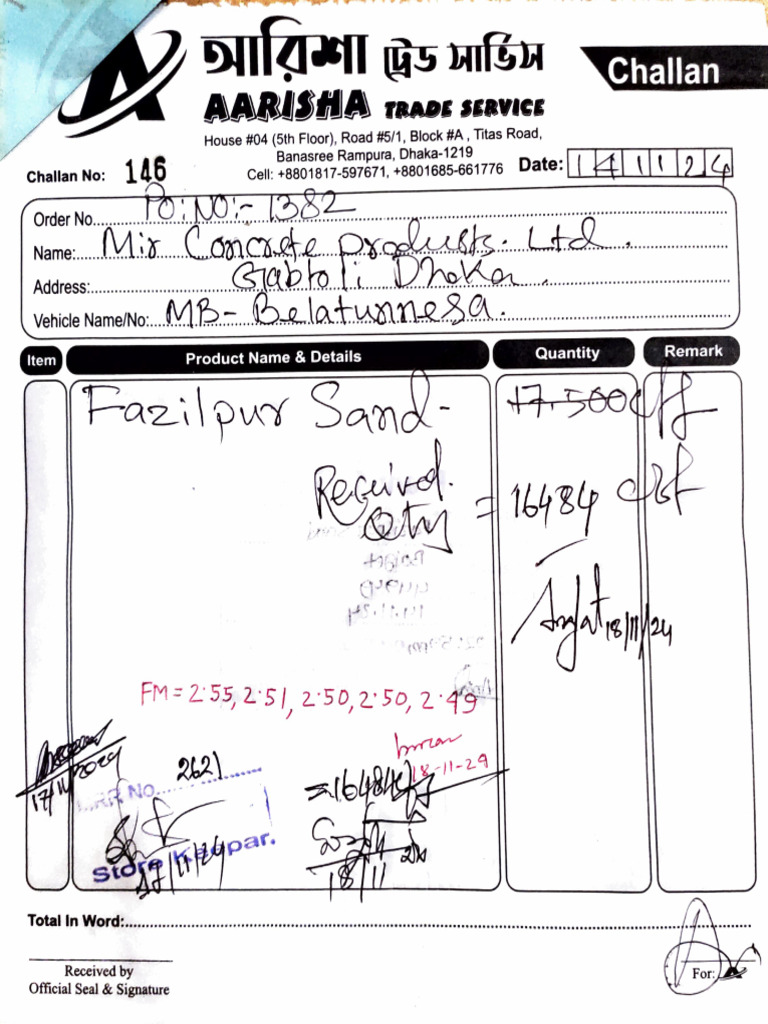 আরিশা ট্রেড সার্ভিস
AARISHA TRADE SERVICE
Challan
House #04 (5th Floor), Road #5/1, Block #A , Titas Road,
Banasree Rampura, Dhaka-1219
Cell: +8801817-597671, +8801685-661776
Challan No: 146
Date: 141124
Order No. PO: NO:- 1382
Name: Mir Concrete Products. Ltd.
Address: Gabtoli Dhaka.
Vehicle Name/No: MB- Belatunnesa.
Item Product Name & Details Quantity Remark
Fazilpur Sand- 17.500 cft
Received.
Qty = 16484 cft
18/11/24
FM = 2.55, 2.51, 2.50, 2.50, 2.49
18-11-29
17/11/2024
MRR No. 2621
=16484
Store Keepar.
18/11
Total In Word:
Received by
Official Seal & Signature
For: